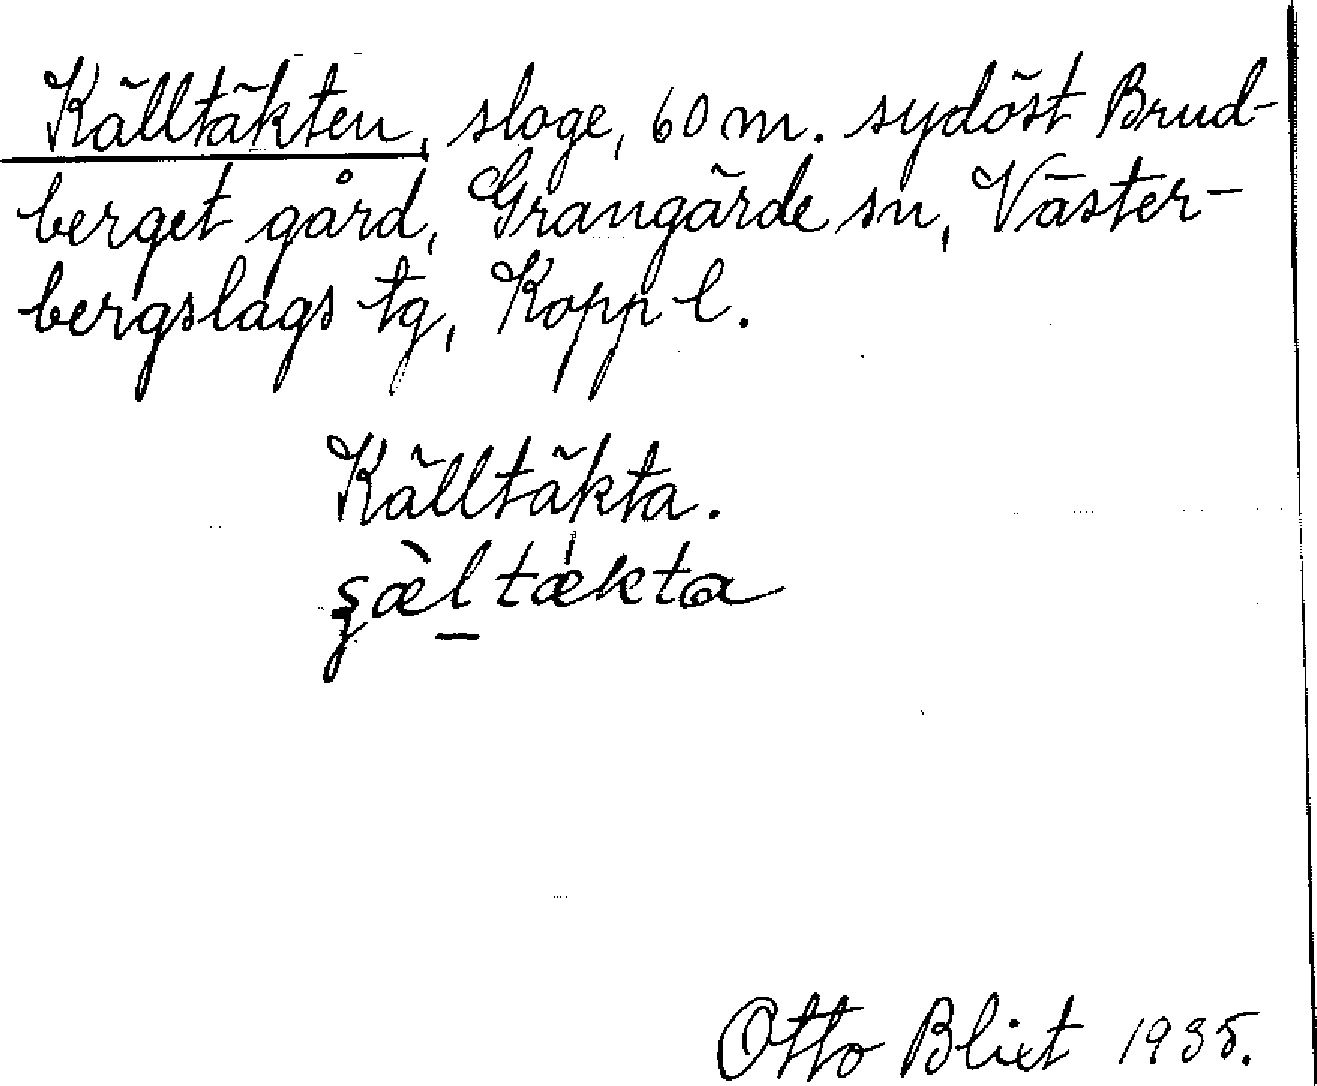 Källtäkten, sloge, 60 m. sydöst Brud-
berget gård, Grangärde sn, Väster-
bergslags tg, Kopp l.
Källtäkta.
Otto Blixt 1935.